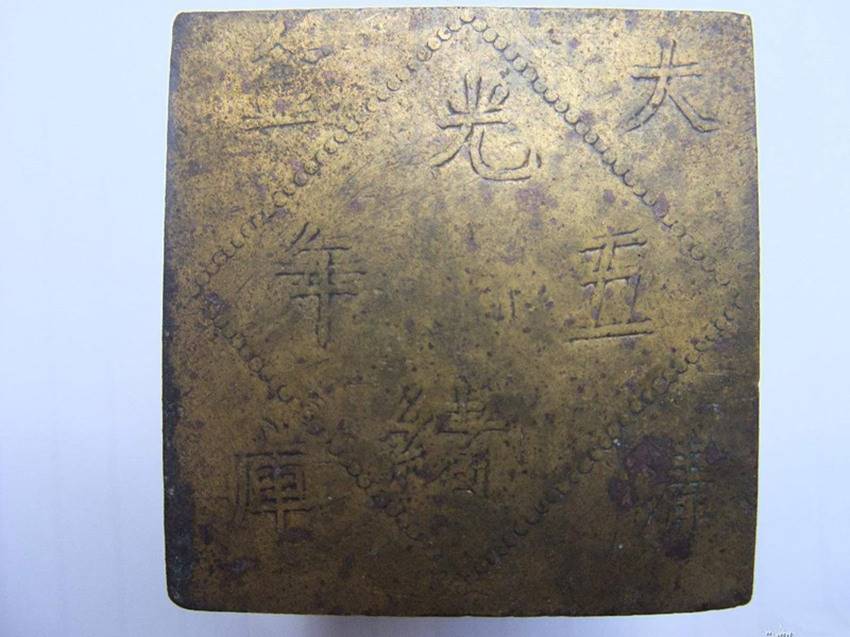 大清
金庫
光緒
五年